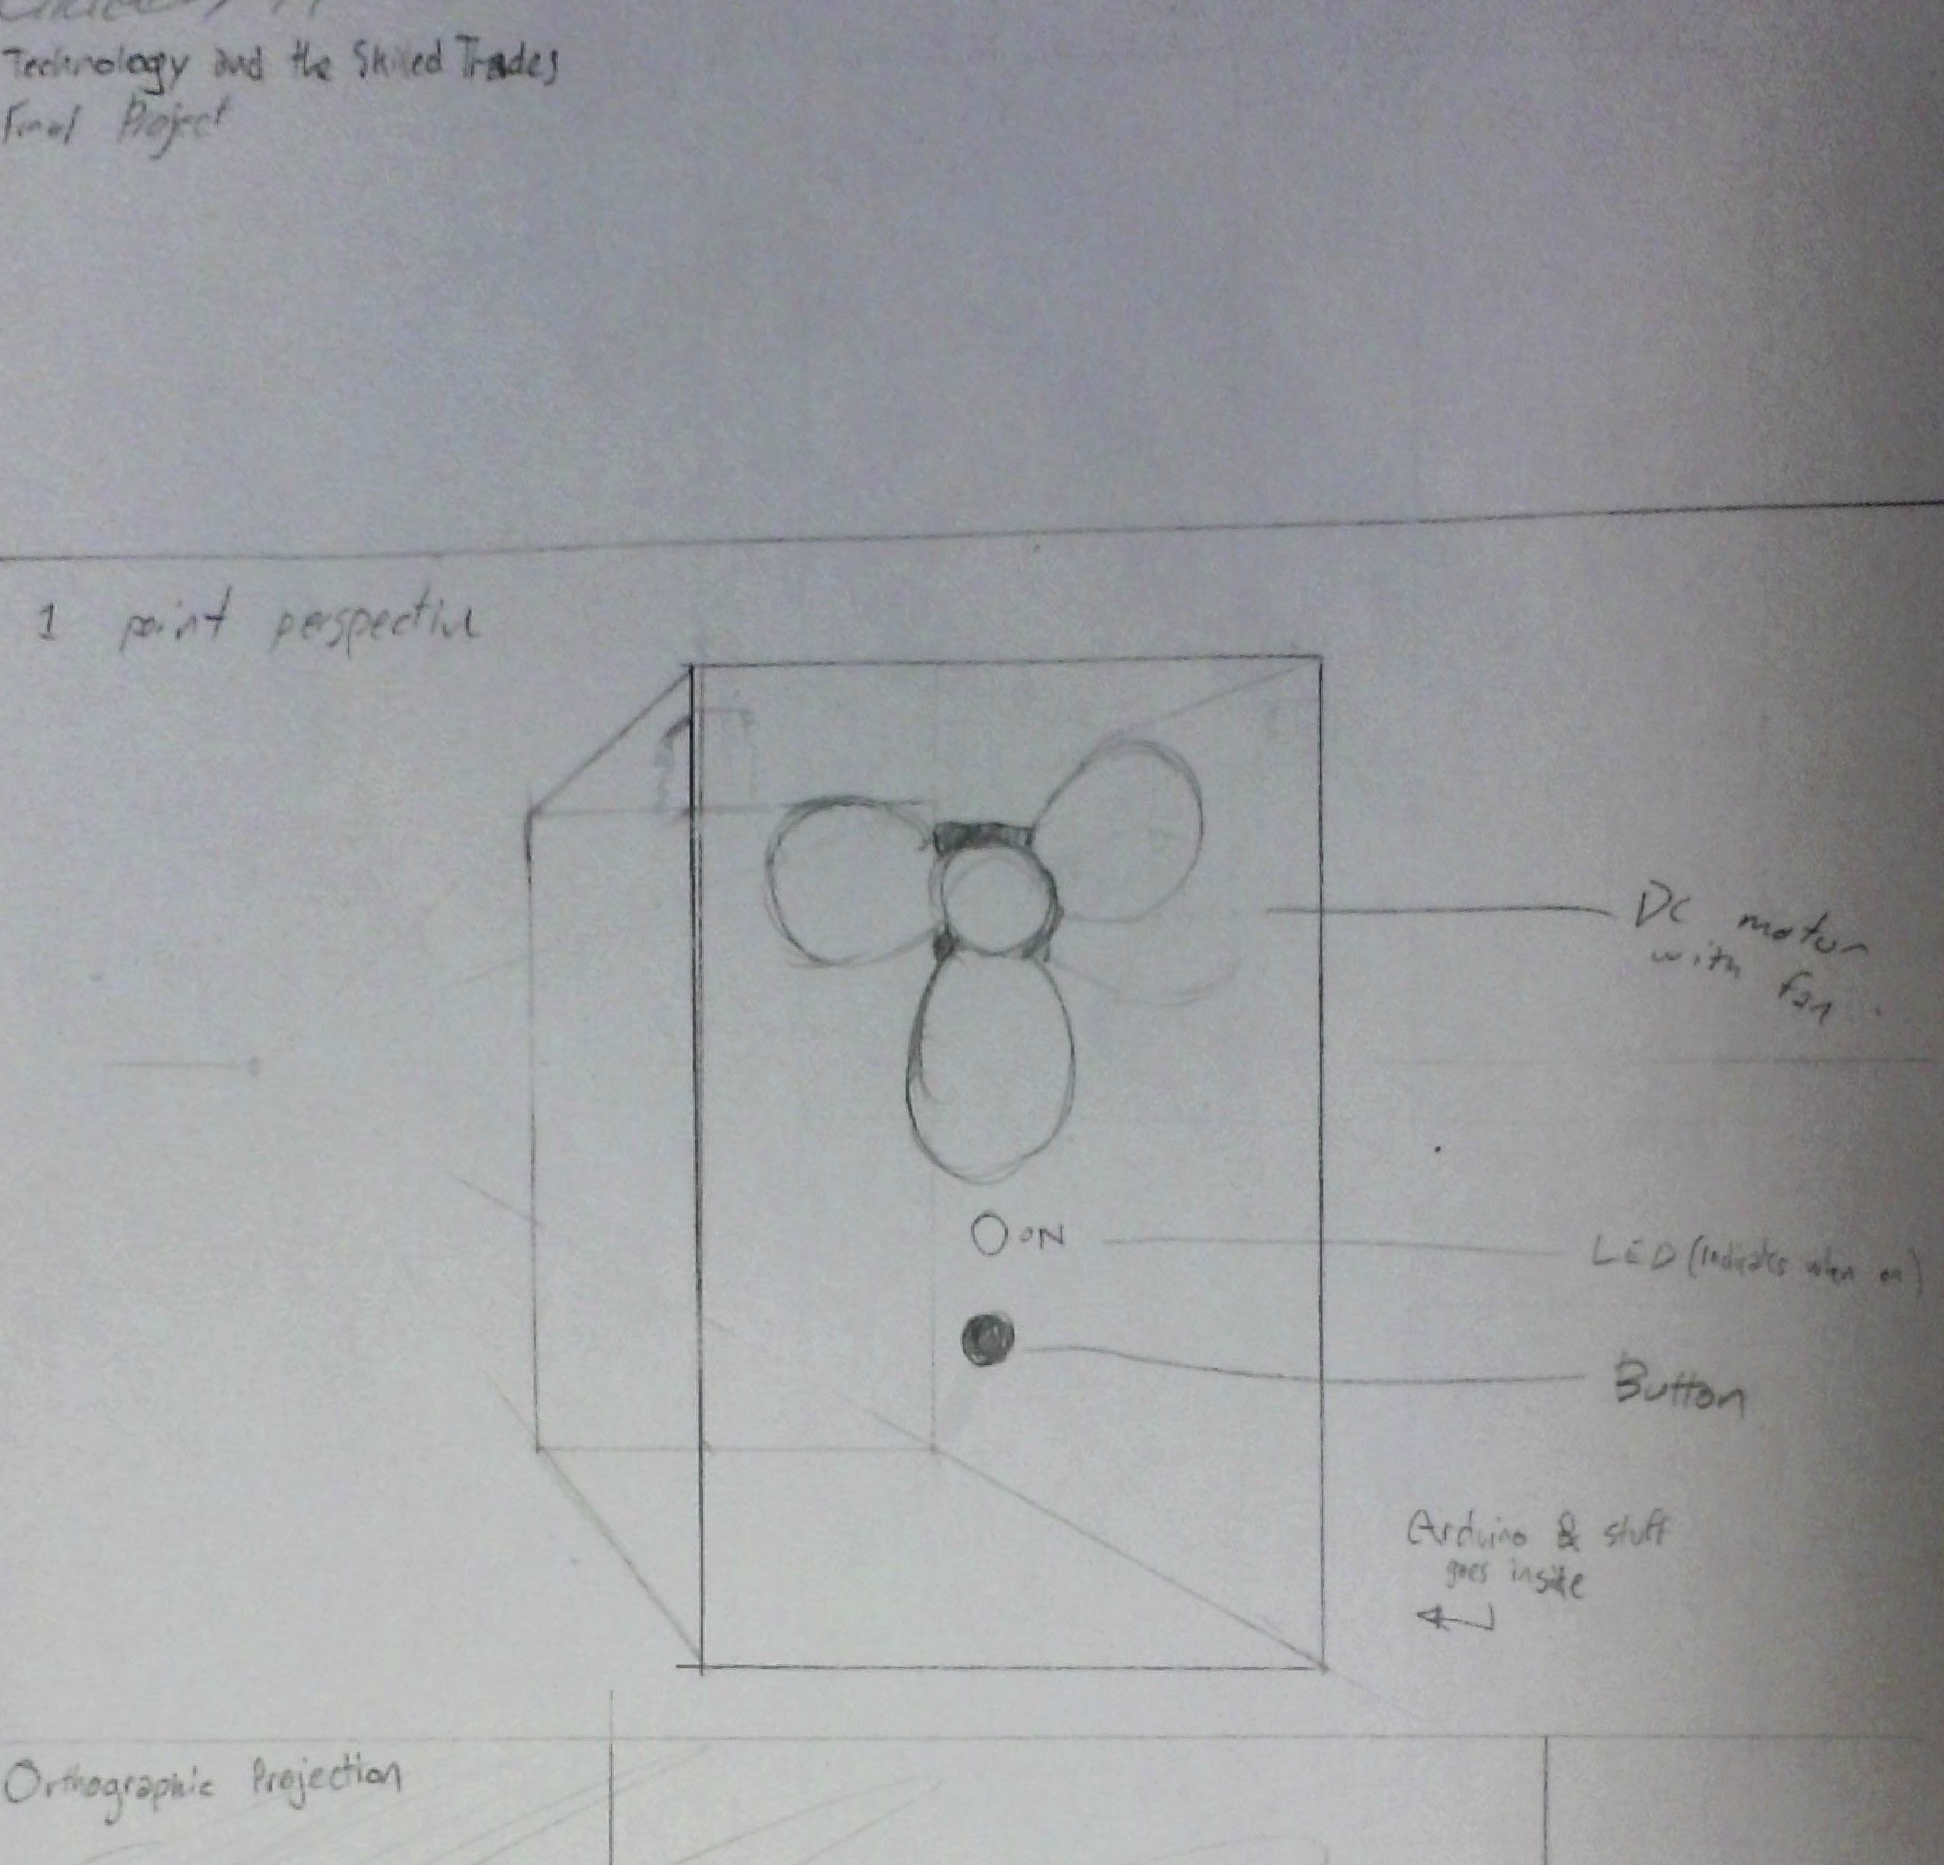 Technology and the Skilled Trades
Final Project
1 point perspective
DC motor
with fan
ON
LED (indicates when on)
Button
Arduino & stuff
goes inside
Orthographic Projection